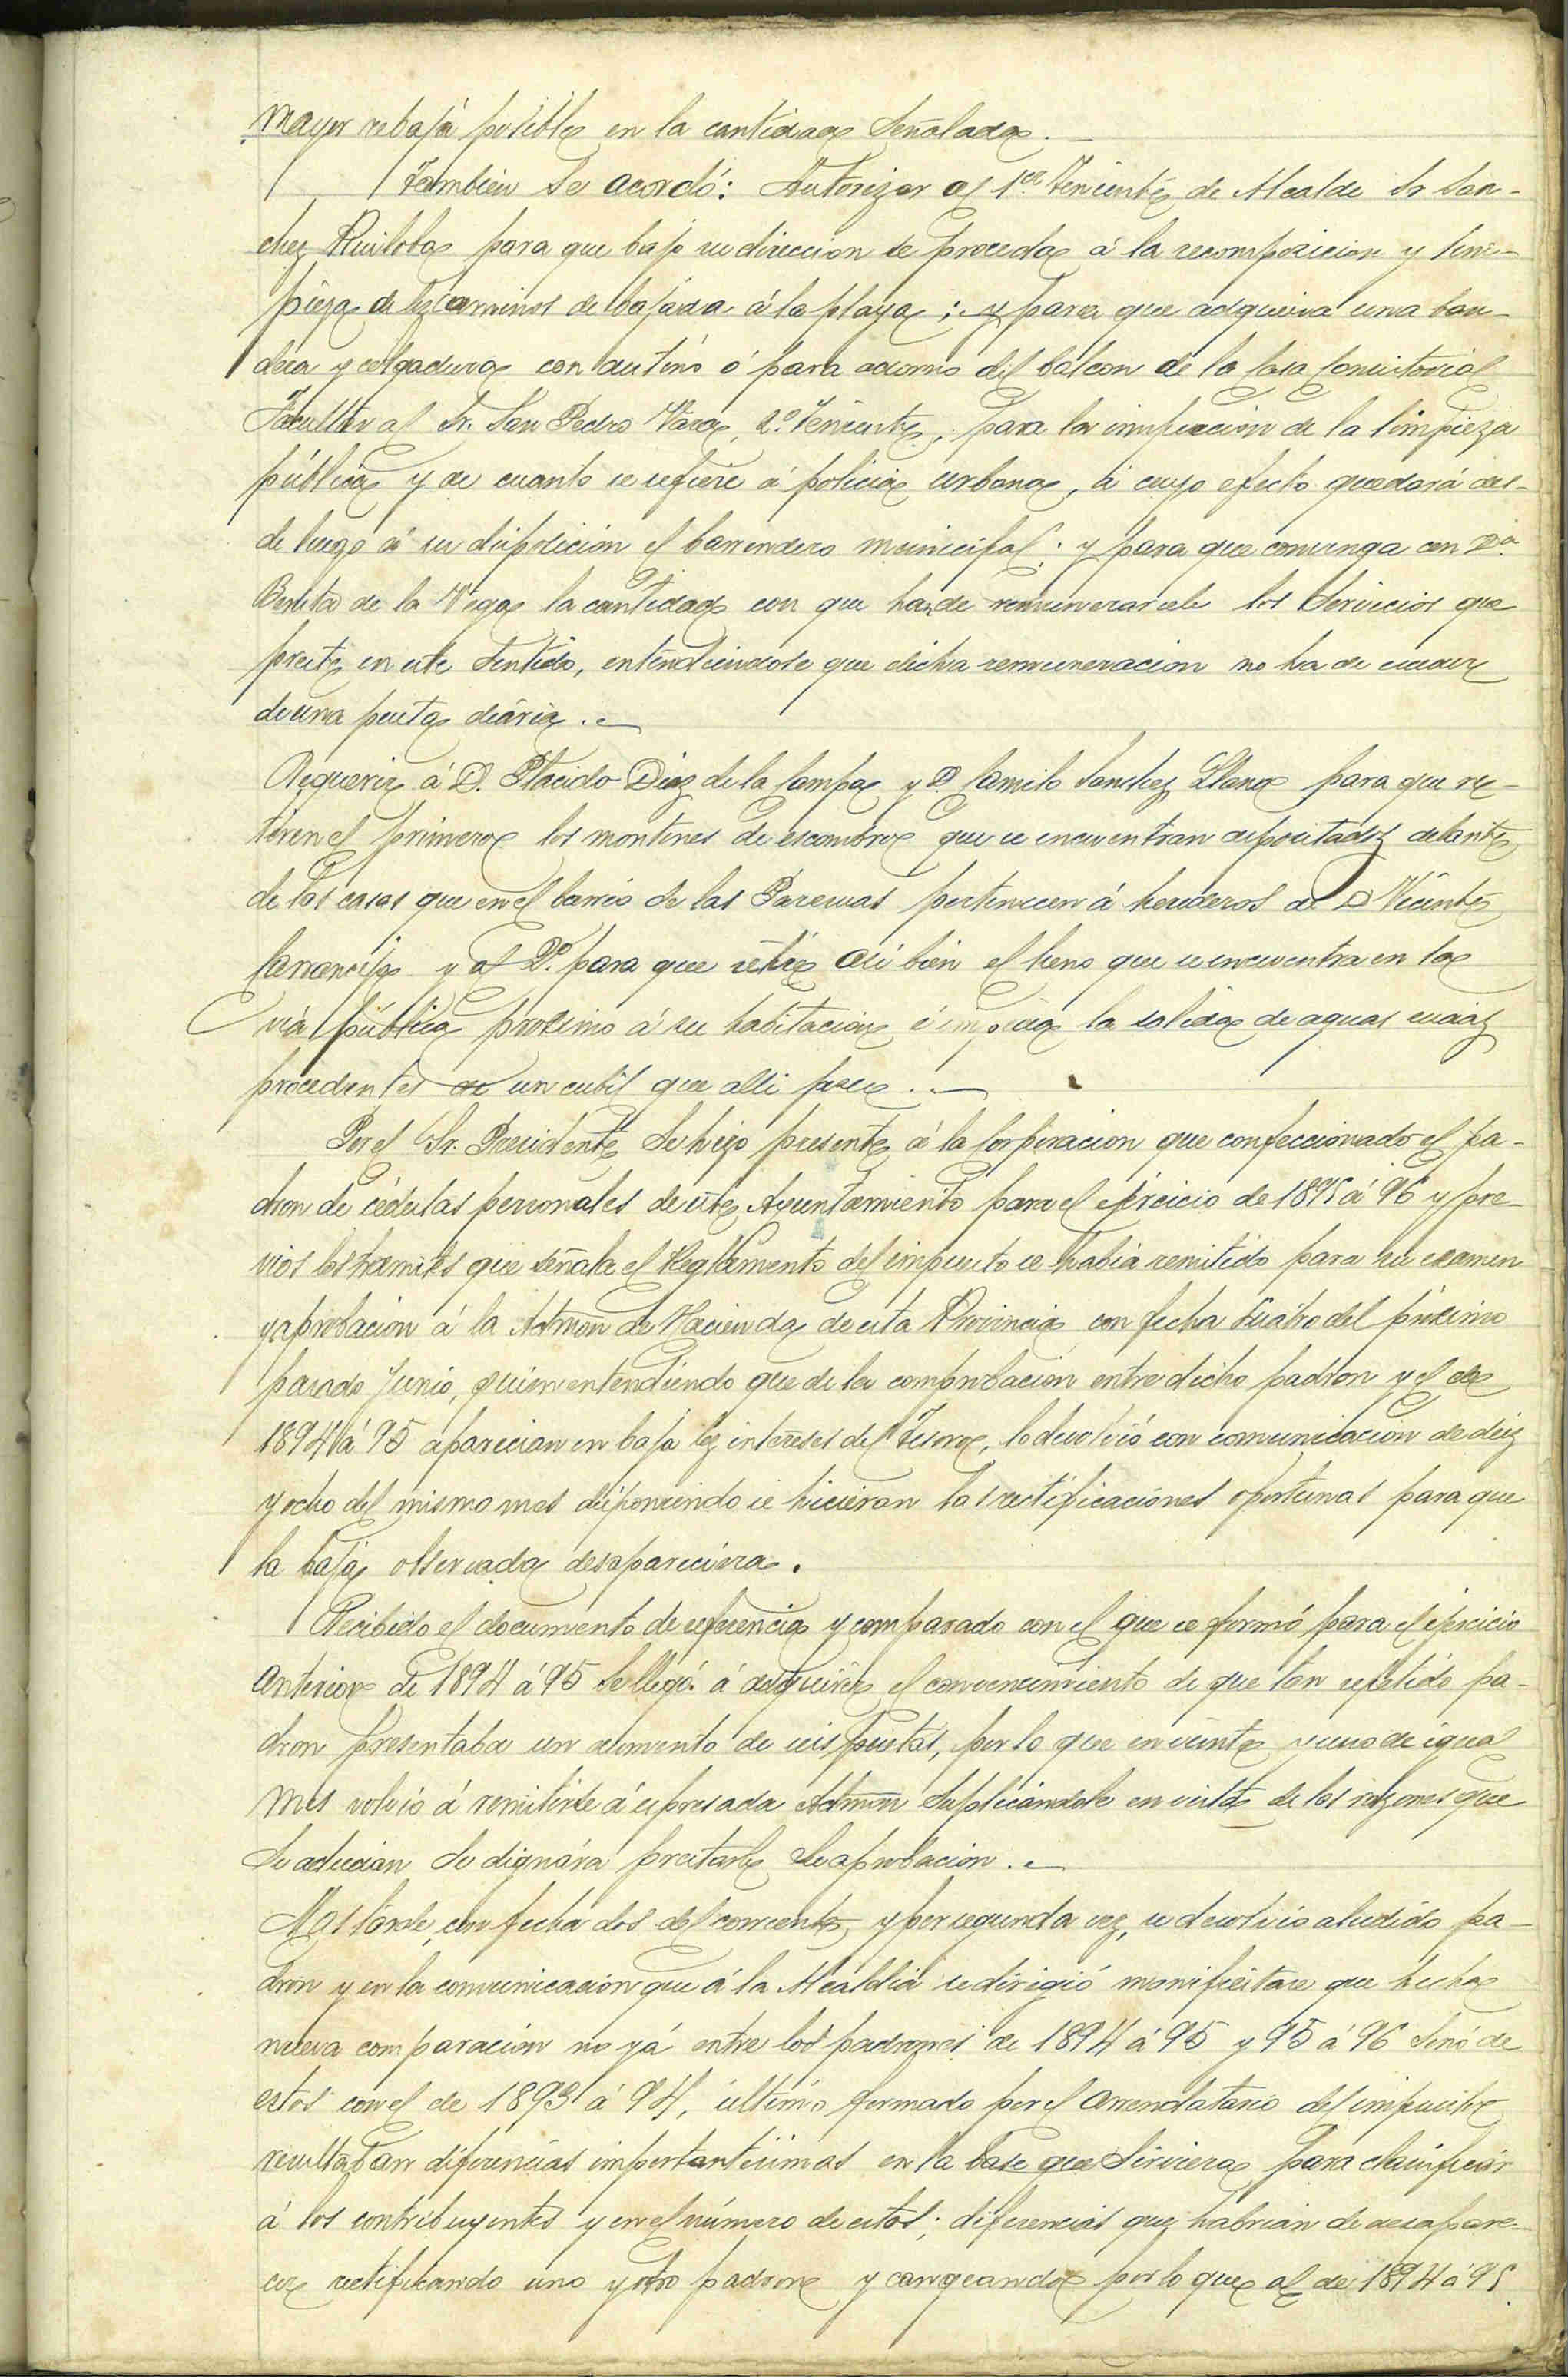 mayor rebaja posible en la cantidad señalada.
También se acordó: Autorizar al 1er Teniente de Alcalde Sr San-
chez Ruiloba para que bajo su direccion se proceda á la recomposicion y lim-
pieza de los caminos de bajada á la playa; y para que adquiera una ban-
dera y colgadura con destino ó para adorno del balcon de la Casa Consistorial
Facultar al Sr. San Pedro Vara, 2º Teniente, para la inspeccion de la limpieza
pública y de cuanto se refiere á policia urbana, á cuyo efecto quedará des-
de luego á su disposicion el barrendero municipal; y para que convenga con Dª
Benita de la Vega la cantidad con que ha de remunerarsele los servicios que
preste en este sentido, entendiendose que dicha remuneracion no ha de exceder
de una peseta diaria.
Requerir á D. Plácido Diaz de la Campa y D. Camilo Sanchez Llana para que re-
tiren el primero los montones de escombro que se encuentran depositados delante
de las casas que en el barrio de las pertenecen á herederos de D Vicente
Carranceja y al 2º para que retire asi bien el heno que se encuentra en la
via pública proximo á su habitacion é impida la salida de aguas sucias
procedentes de un cubil que alli posee.
Por el Sr. Presidente se hizo presente á la Corporacion que confeccionado el pa-
dron de cédulas personales de este Ayuntamiento para el ejercicio de 1895 á 96 y pre-
vios los tramites que señala el Reglamento del impuesto se habia remitido para su examen
y aprobacion á la Admon de Hacienda de esta Provincia con fecha cuatro del próximo
pasado Junio, quien entendiendo que de la comprobacion entre dicho padron y el de
1894 á 95 aparecian en baja los intereses del Tesoro, lo devolvió con comunicacion de diez
y ocho del mismo mes disponiendo se hicieran las rectificaciones oportunas para que
la baja observada desapareciera.
Recibido el documento de referencia y comparado con el que se formó para el ejercicio
anterior de 1894 á 95 se llegó á adquirir el convencimiento de que tan repetido pa-
dron presentaba un aumento de seis pesetas, por lo que en veinte y uno de igual
mes volvió á remitirse á expresada Admon suplicándole en vista de las razones que
se aducian se dignára prestarle su aprobacion.
Mas tarde, con fecha dos del corriente y por segunda vez, se devolvió aludido pa-
dron y en la comunicacion que á la Alcaldía se dirigió manifiestase que hecha
nueva comparacion no yá entre los padrones de 1894 á 95 y 95 á 96 sinó de
estos con el de 1893 á 94, último formado por el arrendatario del impuesto
resultaban diferencias importantisimas en la base que sirviera para clasificar
á los contribuyentes y en el número de estos; diferencias que habrian de desapare-
cer rectificando uno y otro padron y cangeando por lo que al de 1894 á 95